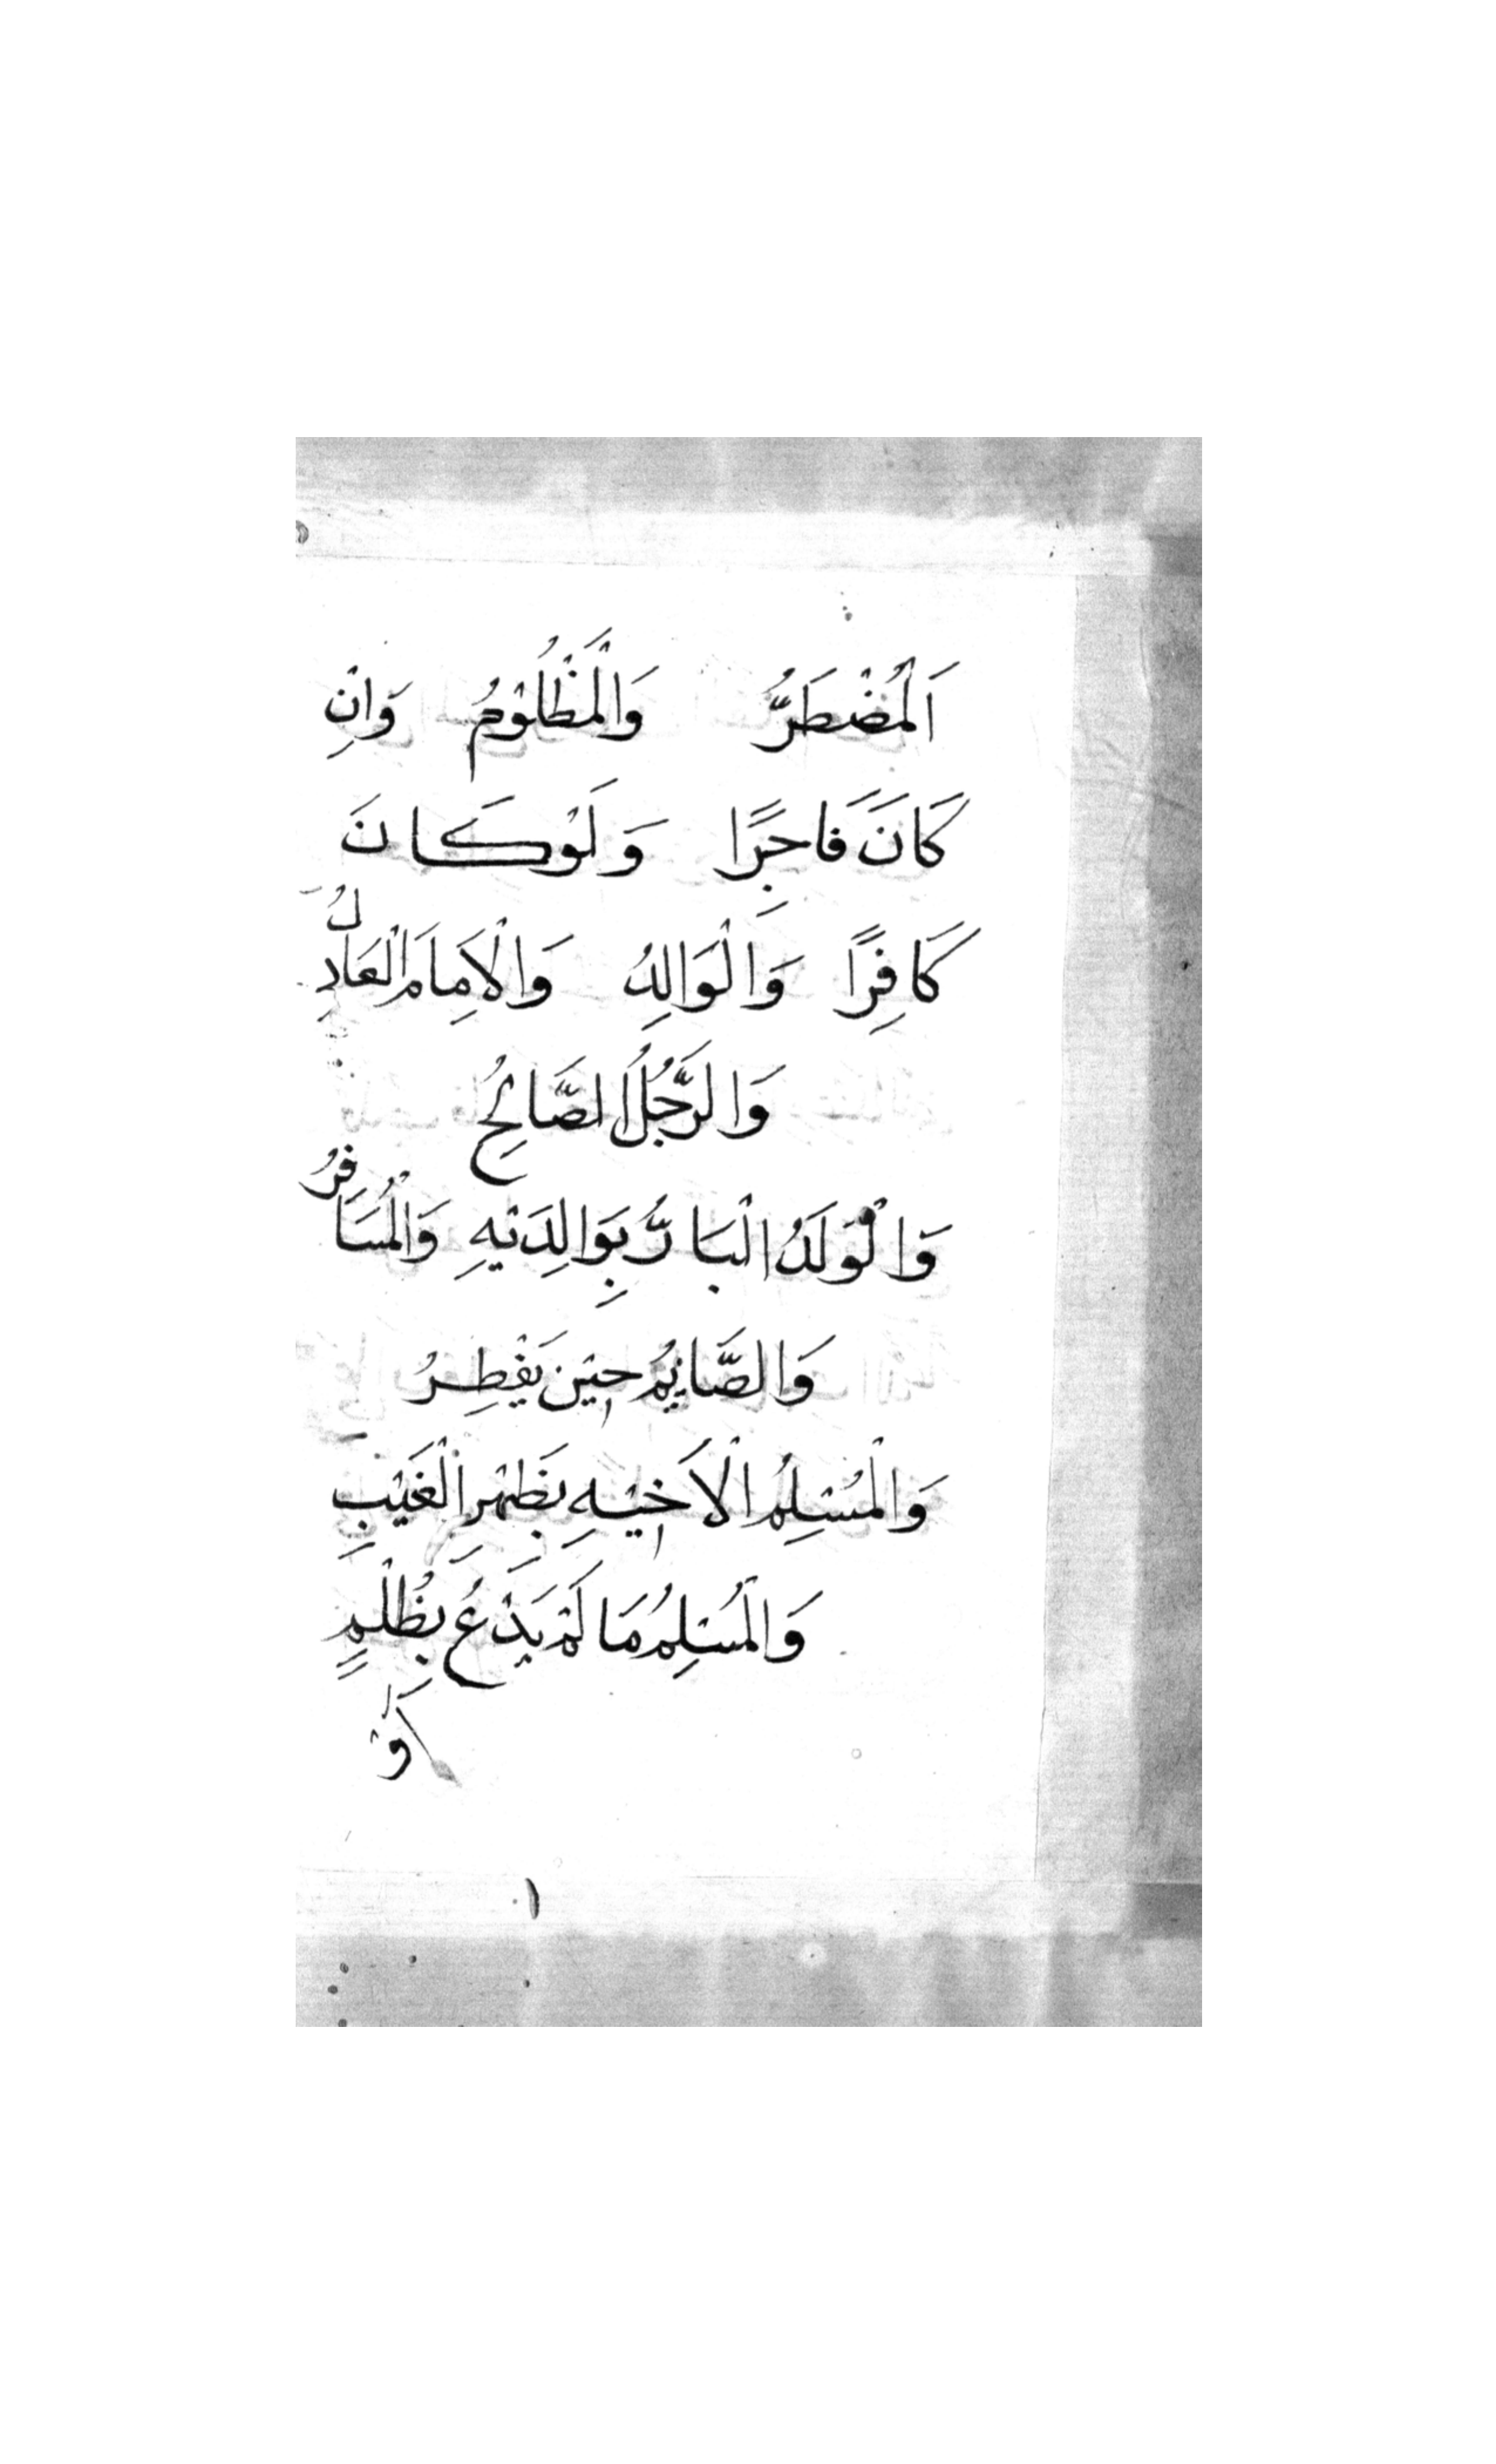 اَلْمُضْطَرُّ وَالْمَظْلُوْمُ وَاِنْ
كَانَ فَاجِرًا وَلَوْكَانَ
كَافِرًا وَالْوَالِدُ وَالْاِمَامَ الْعَادِلُ
وَالرَّجُلُ الصَّالِحُ
وَالْوَلَدُ الْبَارُّ بِوَالِدَيْهِ وَالْمُسَافِرُ
وَالصَّايِمُ حِيْنَ يَفْطِرُ
وَالْمُسْلِمُ الْاَخِيْهِ بِظَهْرِ الْغَيْبِ
وَالْمُسْلِمُ مَا لَمْ يَدْعُ بِظُلْمٍ
اَوْ
١